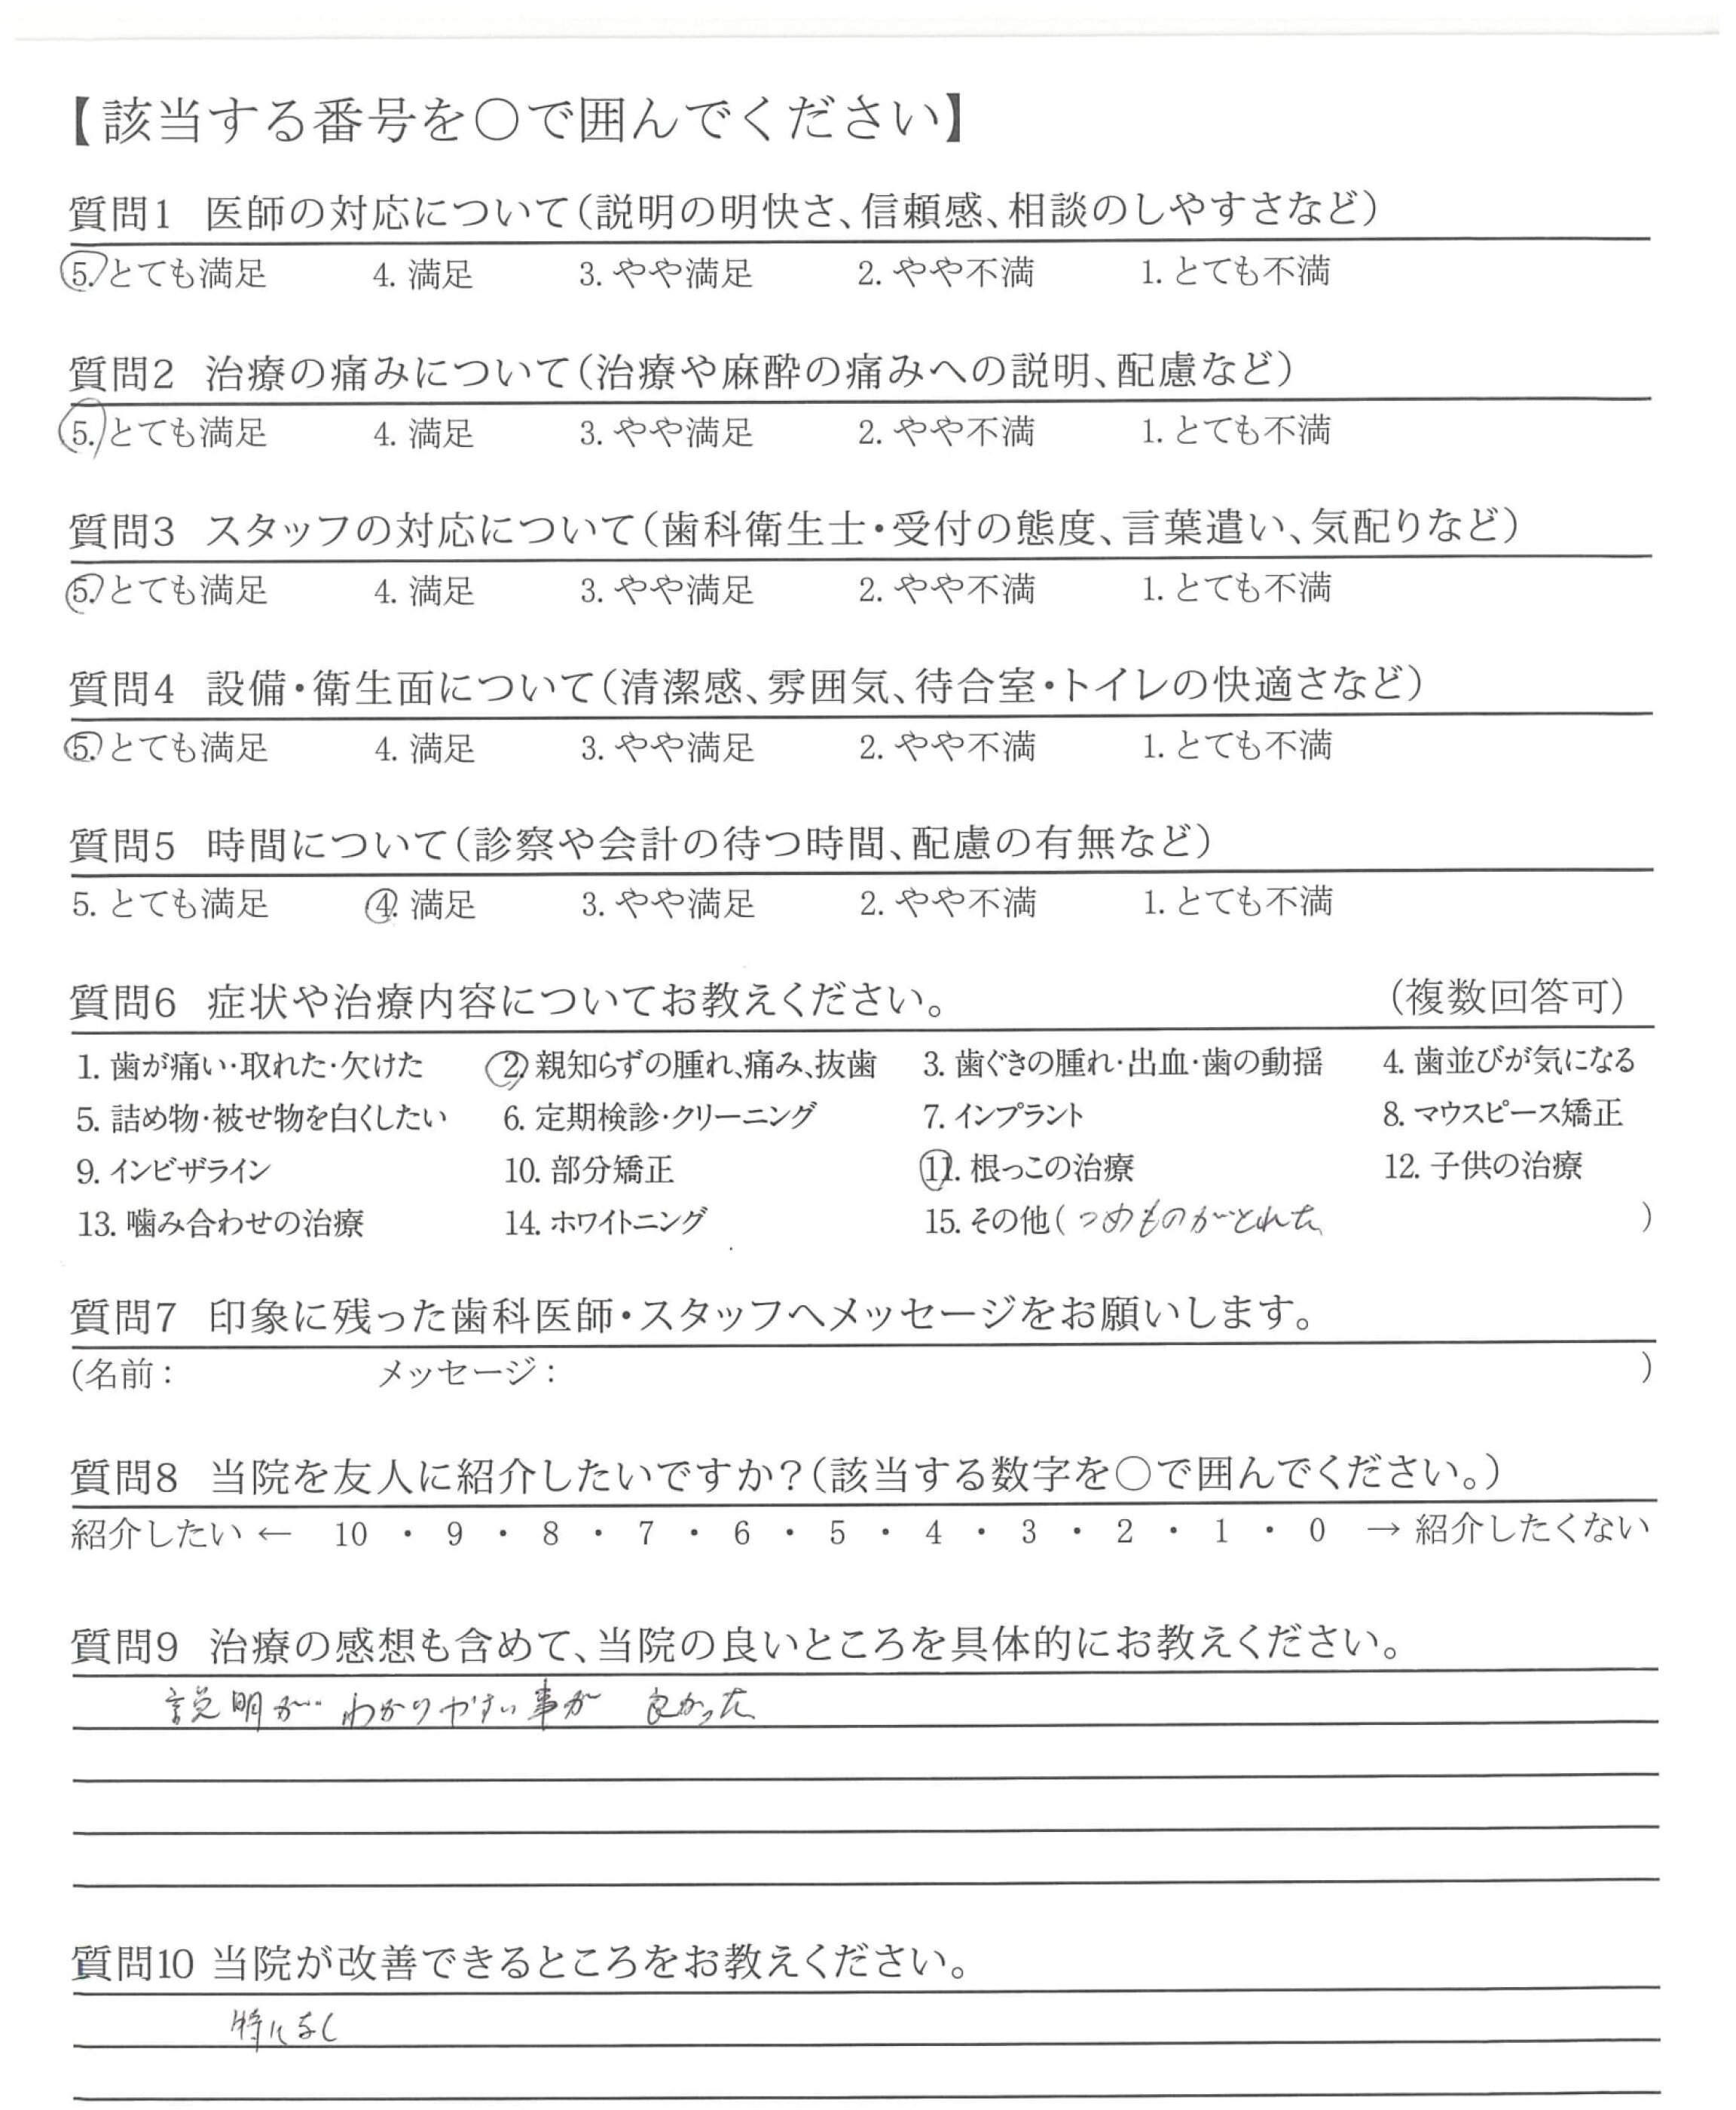 【該当する番号を○で囲んでください】
質問1 医師の対応について(説明の明快さ、信頼感、相談のしやすさなど)
5. とても満足 4. 満足 3. やや満足 2. やや不満 1. とても不満
質問2 治療の痛みについて(治療や麻酔の痛みへの説明、配慮など)
5. とても満足 4. 満足 3. やや満足 2. やや不満 1. とても不満
質問3 スタッフの対応について(歯科衛生士・受付の態度、言葉遣い、気配りなど)
5. とても満足 4. 満足 3. やや満足 2. やや不満 1. とても不満
質問4 設備・衛生面について(清潔感、雰囲気、待合室・トイレの快適さなど)
5. とても満足 4. 満足 3. やや満足 2. やや不満 1. とても不満
質問5 時間について(診察や会計の待つ時間、配慮の有無など)
5. とても満足 4. 満足 3. やや満足 2. やや不満 1. とても不満
質問6 症状や治療内容についてお教えください。 (複数回答可)
1. 歯が痛い・取れた・欠けた 2. 親知らずの腫れ、痛み、抜歯 3. 歯ぐきの腫れ・出血・歯の動揺 4. 歯並びが気になる
5. 詰め物・被せ物を白くしたい 6. 定期検診・クリーニング 7. インプラント 8. マウスピース矯正
9. インビザライン 10. 部分矯正 11. 根っこの治療 12. 子供の治療
13. 噛み合わせの治療 14. ホワイトニング 15. その他( つめものがとれた )
質問7 印象に残った歯科医師・スタッフへメッセージをお願いします。
(名前: メッセージ: )
質問8 当院を友人に紹介したいですか?(該当する数字を○で囲んでください。)
紹介したい ← 10 ・ 9 ・ 8 ・ 7 ・ 6 ・ 5 ・ 4 ・ 3 ・ 2 ・ 1 ・ 0 → 紹介したくない
質問9 治療の感想も含めて、当院の良いところを具体的にお教えください。
説明が わかりやすい事が 良かった
質問10 当院が改善できるところをお教えください。
特になし